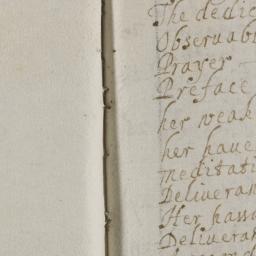 The dedic
Observab
Prayer
Preface
her weak
her have
meditati
Deliveran
Her
Deliveran